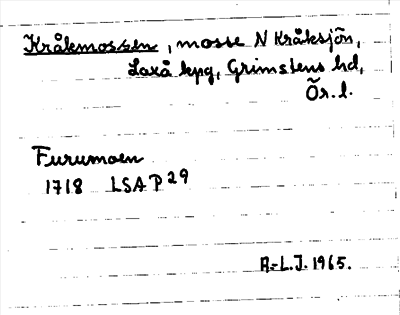 Kråkmossen, mosse N Kråksjön,
Laxå kpg, Grimstens hd,
Ör. l.
Furumoen
1718 LSA P 29
A-L.J. 1965.